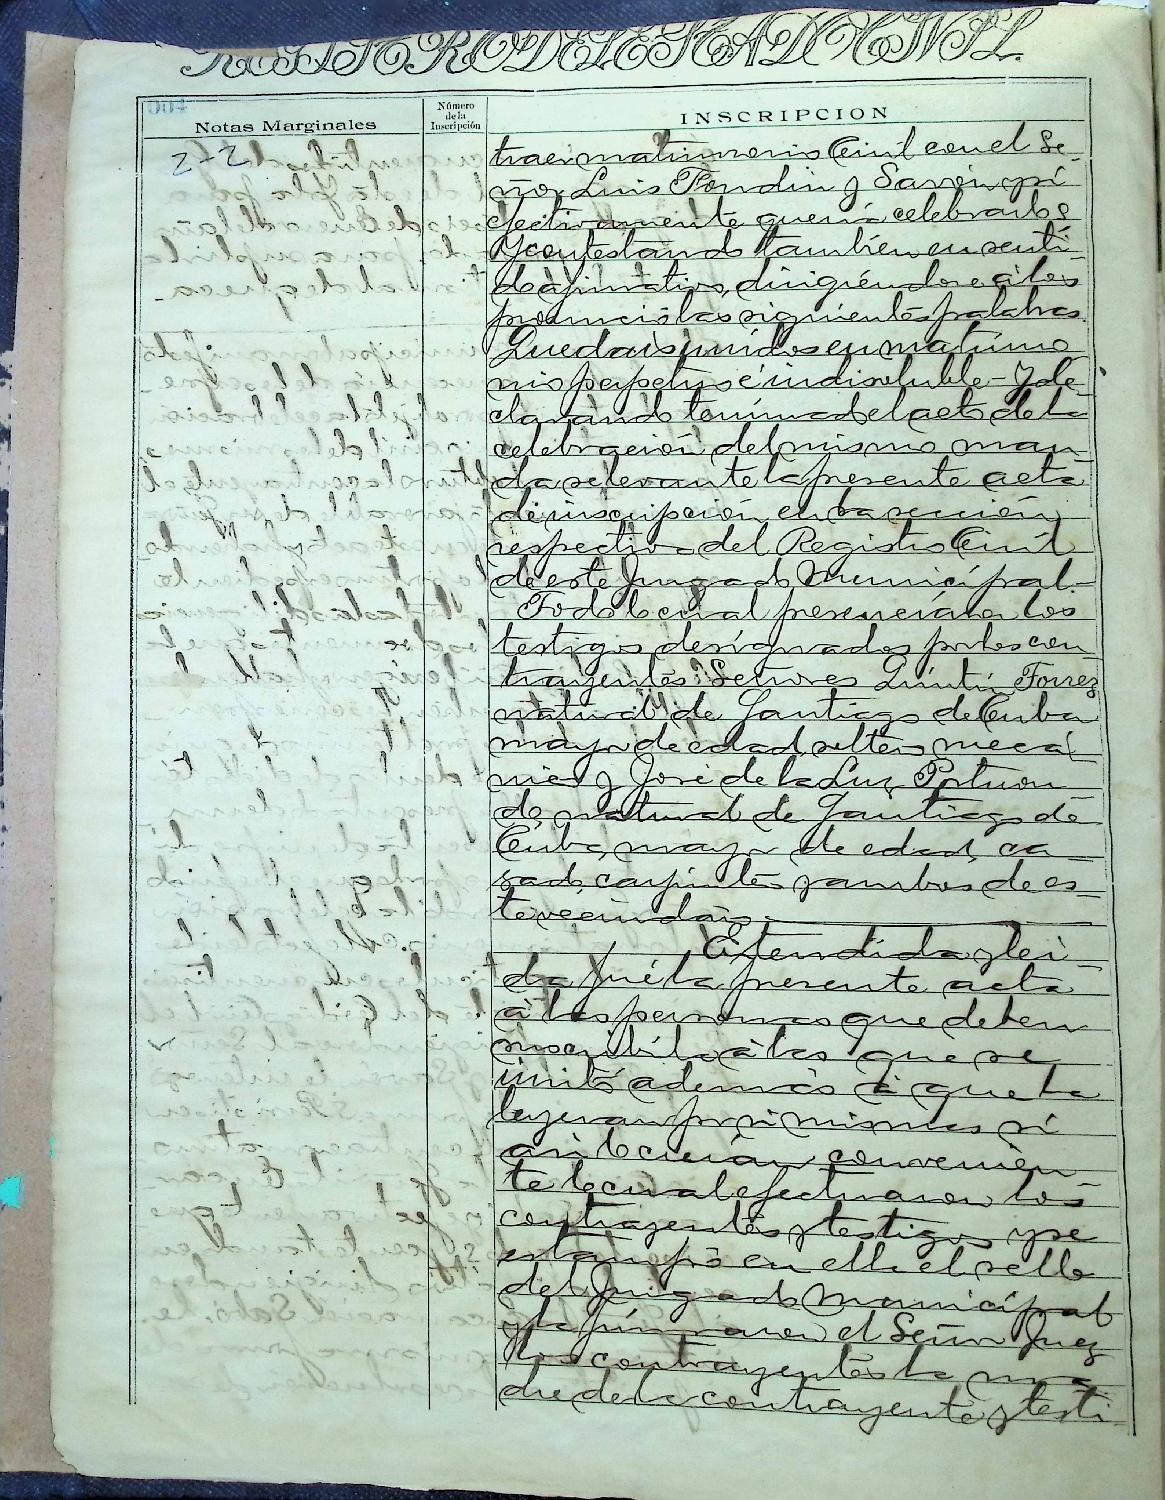 REGISTRO DEL ESTADO CIVIL.
Notas Marginales
Número de la Inscripción
INSCRIPCION
2-2
traer matrimonio Civil con el Se-
ñor Luis Pondin y Savón y si
efectivamente quería celebrarlo,
y contestando también en senti-
do afirmativo, dirigiéndose á los
pronunció las siguientes palabras
Quedais unidos en matrimo-
nio perpetuo é indisoluble - Y de-
clarando terminado el acto de la
celebración del mismo man-
da se levante la presente acta
de inscripción en la sección
respectiva del Registro Civil
de este Juzgado Municipal.-
Todo lo cual presenciaron los
testigos designados por los con-
trayentes Señores Quintín Torrez
natural de Santiago de Cuba
mayor de edad, soltero mecá-
nico y José de la Luz Portuon-
do, natural de Santiago de
Cuba, mayor de edad, ca-
sado, carpintero y ambos de es-
te vecindario.
Extendida y leí-
da fué la presente acta
á las personas que deben
suscribirla á las que se
invitó además á que la
leyeran por si mismas si
asi lo creían convenien-
te lo cual efectuaron los
contrayentes y testigos y se
estampó en ella el sello
del Juzgado Municipal
y la firmaron el Señor Juez
los contrayentes la ma-
dre de la contrayente y testi-